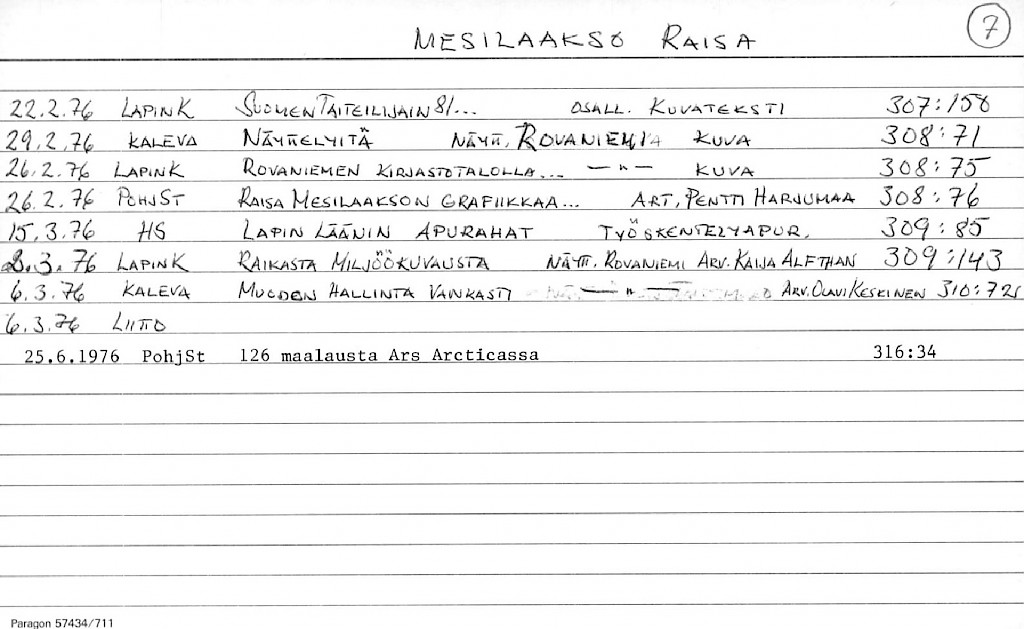 MESILAAKSO RAISA 7
22.2.76 LAPINK SUOMEN TAITEILIJAIN 81... OSALL. KUVATEKSTI 307:158
29.2.76 KALEVA NÄYTTELYITÄ NÄYTT. ROVANIEMI KUVA 308:71
26.2.76 LAPINK ROVANIEMEN KIRJASTOTALOLLA... —"— KUVA 308:75
26.2.76 POHJST RAISA MESILAAKSON GRAFIIKKAA... ART. PENTTI HARJUMAA 308:76
15.3.76 HS LAPIN LÄÄNIN APURAHAT TYÖSKENTELYAPUR. 309:85
8.3.76 LAPINK RAIKASTA MILJÖÖKUVAUSTA NÄYTT. ROVANIEMI ARV. KAIJA ALFTHAN 309:143
6.3.76 KALEVA MUODON HALLINTA VANKASTI —"— ARV. OLAVI KESKINEN 310:72
6.3.76 LIITTO
25.6.1976 PohjSt 126 maalausta Ars Arcticassa 316:34
Paragon 57434/711